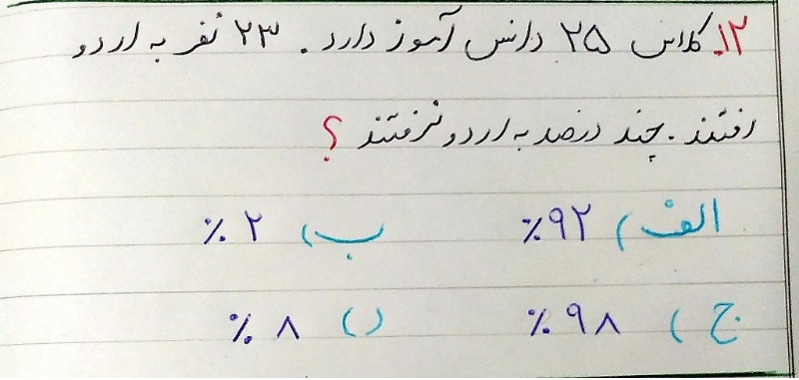 ۱۲. کلاس ۲۵ دانس آموز دارد. ۲۳ نفر به اردو
رفتند. چند درصد به اردو نرفتند ؟
الف) ۹۲٪ ب) ۲٪
ج) ۹۸٪ د) ۸٪